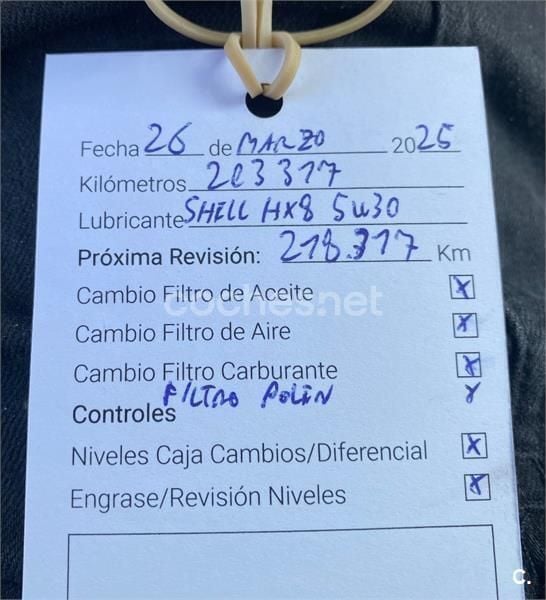 Fecha 26 de MARZO 2025
Kilómetros 203317
Lubricante SHELL HX8 5W30
Próxima Revisión: 218.317 Km
Cambio Filtro de Aceite X
coches.net
Cambio Filtro de Aire X
Cambio Filtro Carburante X
FILTRO POLEN X
Controles
Niveles Caja Cambios/Diferencial X
Engrase/Revisión Niveles X
C.